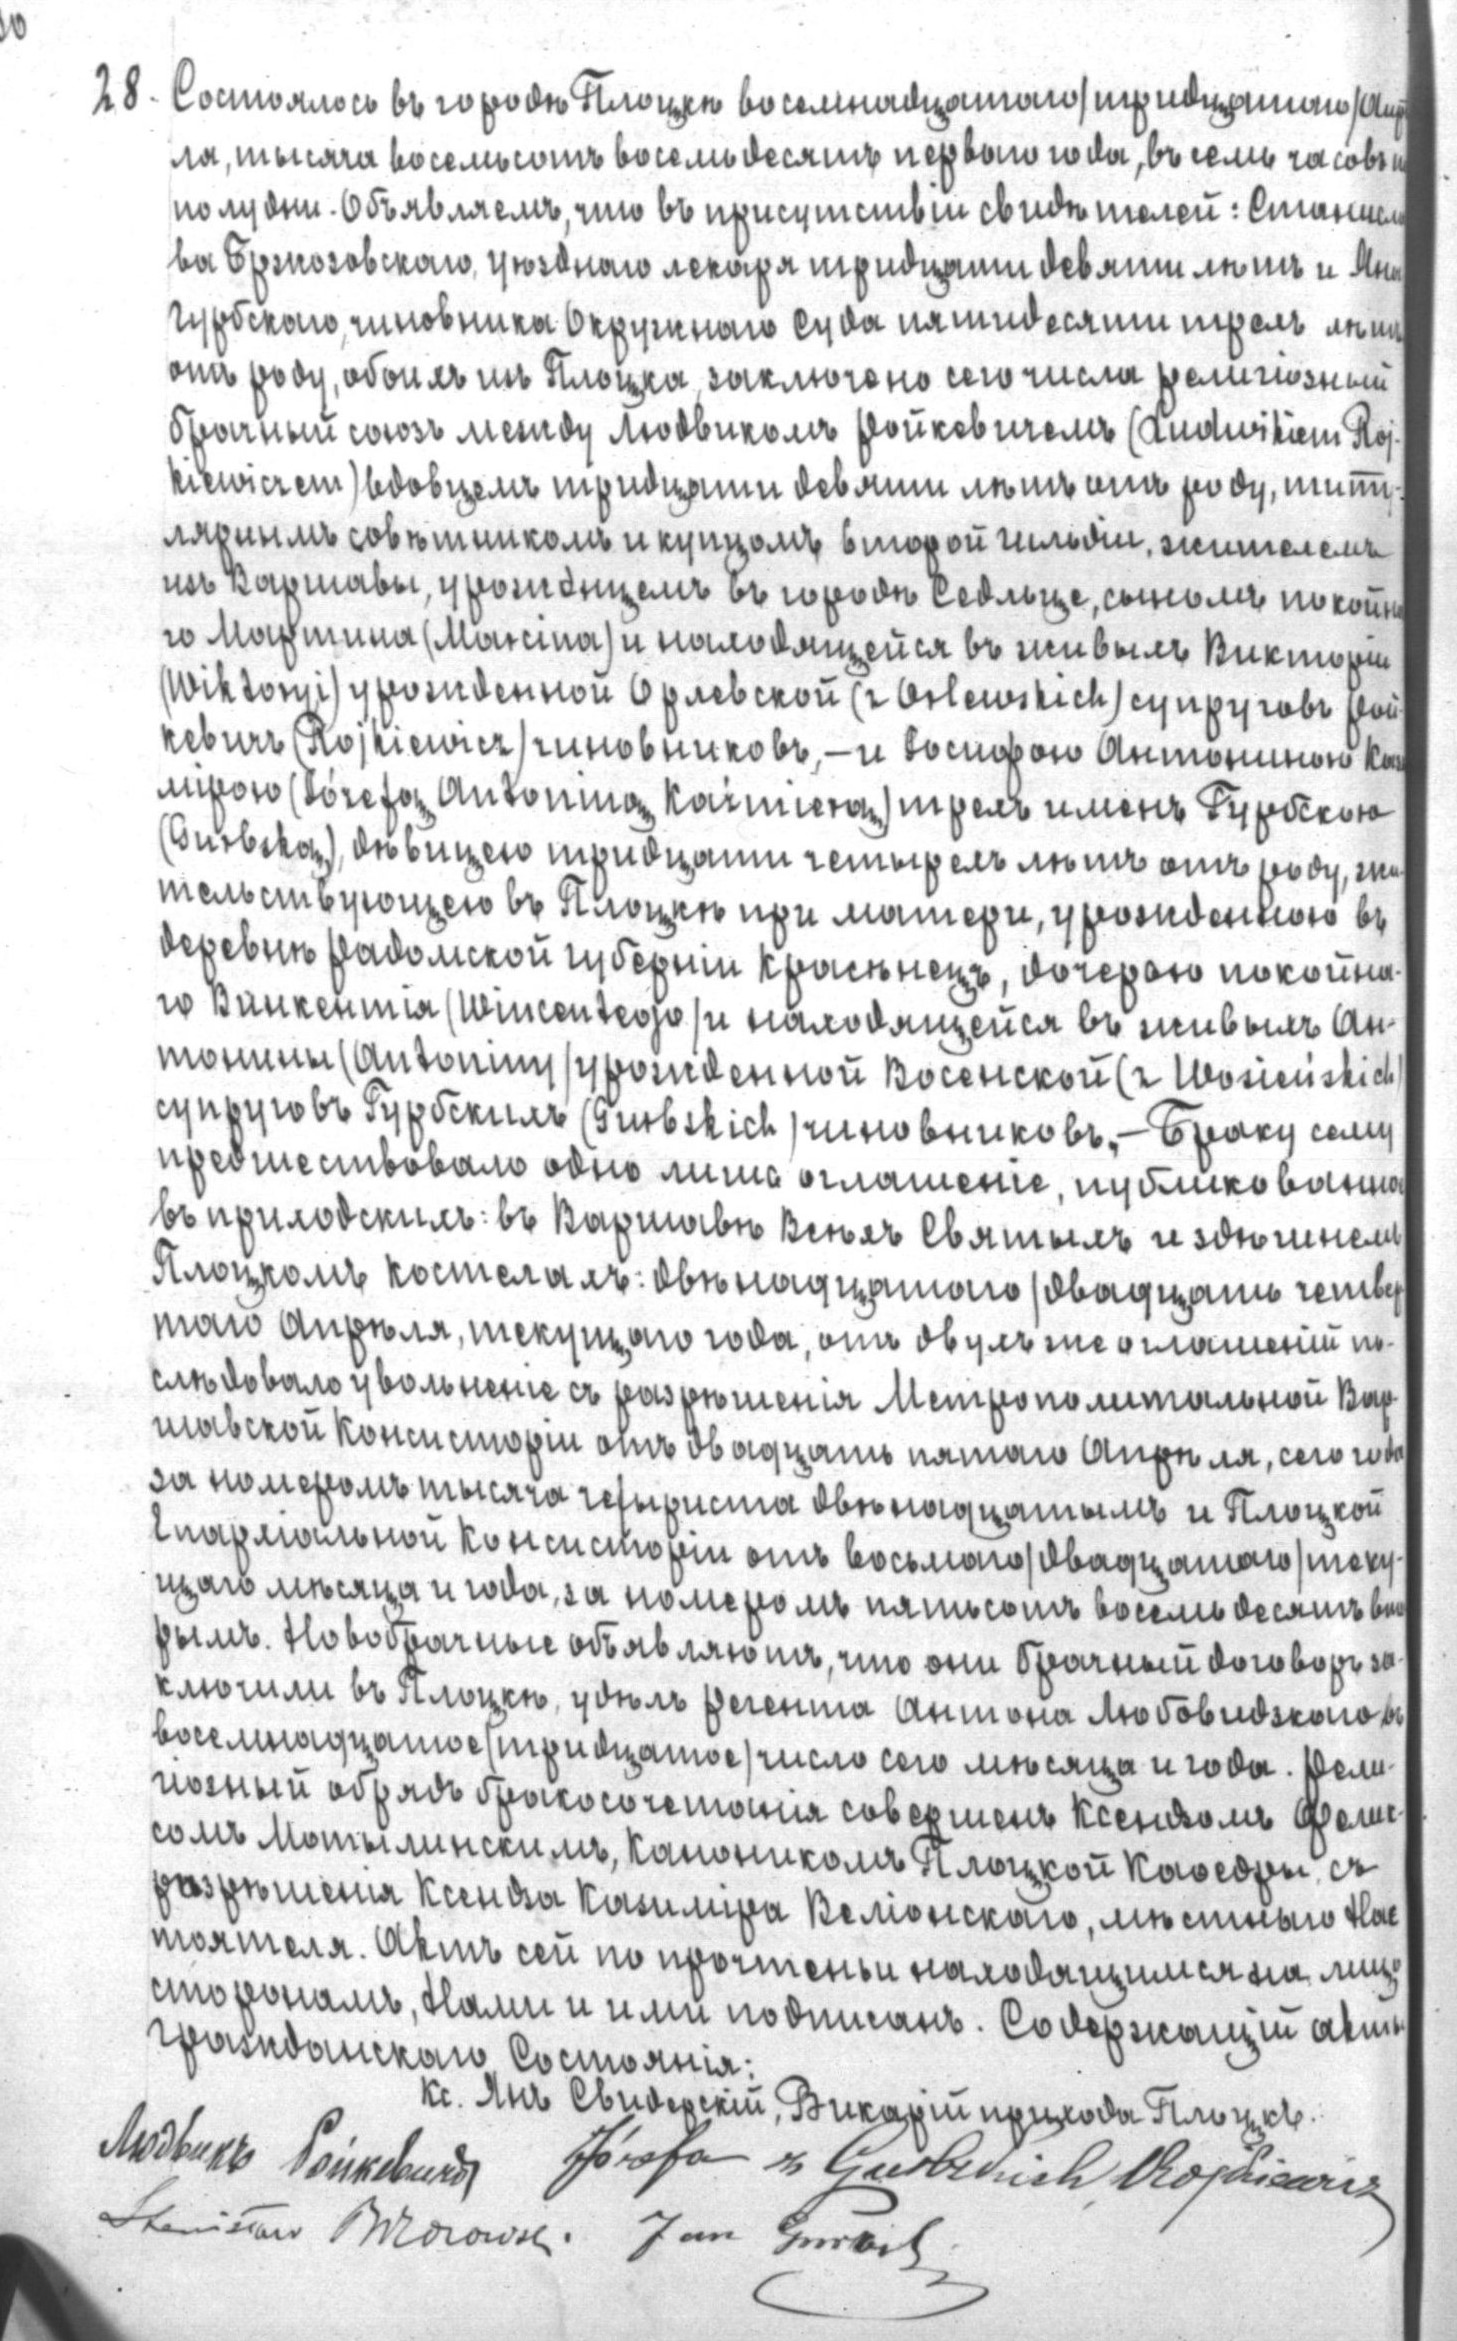 28. Состоялось въ городѣ Плоцкѣ восемнадцатаго/тридцатаго/Апр
ля, тысяча восемьсотъ восемьдесятъ перваго года, въ семь часовъ
полудни. Объявляемъ, что въ присутствіи свидѣтелей: Станисла
ва Бржозовскаго, уѣзднаго лекаря тридцати девяти лѣтъ и Яна
Гурбскаго, чиновника Окружнаго Суда пятидесяти трехъ лѣтъ
отъ роду, обоихъ изъ Плоцка, заключено сего числа религіозный
брачный союзъ между Людвикомъ Ройкевичемъ (Ludwikiem Roj-
kiewiczem) вдовцемъ тридцати девяти лѣтъ отъ роду, титу-
лярнымъ совѣтникомъ и купцомъ второй гильдіи, жителемъ
изъ Варшавы, урожденцемъ въ городѣ Седльце, сыномъ покойна
го Мартина (Marcina) и находящейся въ живыхъ Викторіи
(Wiktoryi) урожденной Орлевской (z Orlewskich) супруговъ Рой-
кевичъ (Rojkiewicz) чиновниковъ, — и Іосифою Антониною Кази
мірою (Józefą Antoniną Kaźmierą) трехъ именъ Гурбскою
(Gurbską), дѣвицею тридцати четырехъ лѣтъ отъ роду, жи-
тельствующею въ Плоцкѣ при матери, урожденною въ
деревнѣ Радомской губерніи Красѣнецъ, дочерью покойна-
го Винкентія (Wincentego/и находящейся въ живыхъ Ан-
тонины (Antoniny/урожденной Восенской (z Wosieńskich)
супруговъ Гурбскихъ (Gurbskich) чиновниковъ. — Браку сему
предшествовало одно лишь оглашеніе, публикованна
въ приходскихъ: въ Варшавѣ Всѣхъ Святыхъ и здѣшнемъ
Плоцкомъ костелахъ: двѣнадцатаго/двадцать четвер
таго Апрѣля, текущаго года, отъ двухъ же оглашеній по-
слѣдовало увольненіе съ разрѣшенія Метрополитальной Вар-
шавской Консисторіи отъ двадцать пятаго Апрѣля, сего года
за номеромъ тысяча четыриста двѣнадцатымъ и Плоцкой
Епархіальной Консисторіи отъ восьмаго/двадцатаго/теку-
щаго мѣсяца и года, за номеромъ пятьсотъ восемьдесятъ вто
рымъ. Новобрачные объявляютъ, что они брачный договоръ за-
ключили въ Плоцкѣ, удѣлъ регента Антона Любовидзкаго въ
восемнадцатое/тридцатое/число сего мѣсяца и года. Рели-
гіозный обрядъ бракосочетанія совершенъ Ксендзомъ Фелик-
сомъ Мотылинскимъ, Каноникомъ Плоцкой Каѳедры, съ
разрѣшенія Ксендза Казиміра Веліонскаго, мѣстнаго Нас
тоятеля. Актъ сей по прочтеньи находящимся на лицо
сторонамъ, Нами и ими подписанъ. Содержащій акты
гражданскаго Состоянія:
Кс. Янъ Свидерскій, Викарій прихода Плоцкъ.
Людвикъ Ройкевичъ Józefa z Gurbskich Rojkiewicz
Stanisław Brzozowsk. Jan Gurbski